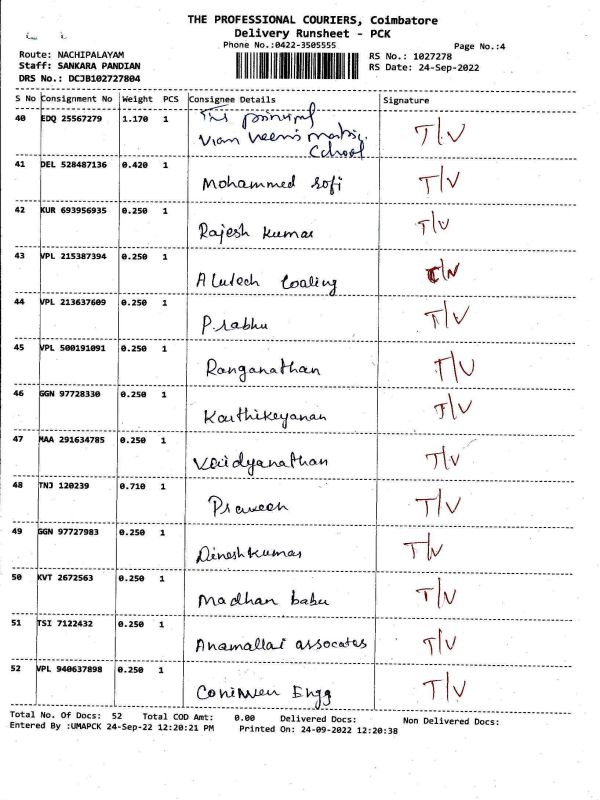 THE PROFESSIONAL COURIERS, Coimbatore
Delivery Runsheet - PCK
Phone No.:0422-3505555 Page No.:4
Route: NACHIPALAYAM RS No.: 1027278
Staff: SANKARA PANDIAN RS Date: 24-Sep-2022
DRS No.: DCJB102727804
S No Consignment No Weight PCS Consignee Details Signature
40 EDQ 25567279 1.170 1 The principal T/V
matric.
School
41 DEL 528487136 0.420 1 Mohammed Sofi T/V
42 KUR 693956935 0.250 1 Rajesh Kumar T/V
43 VPL 215387394 0.250 1 Alutech Coating T/V
44 VPL 213637609 0.250 1 Prabhu T/V
45 VPL 500191091 0.250 1 Ranganathan T/V
46 GGN 97728330 0.250 1 Karthikeyanan T/V
47 MAA 291634785 0.250 1 Vaidyanathan T/V
48 TNJ 120239 0.710 1 Praveen T/V
49 GGN 97727983 0.250 1 Dineshkumar T/V
50 KVT 2672563 0.250 1 Madhan babu T/V
51 TSI 7122432 0.250 1 Anamallai assocates T/V
52 VPL 940637898 0.250 1 Engg T/V
Total No. Of Docs: 52 Total COD Amt: 0.00 Delivered Docs: Non Delivered Docs:
Entered By :UMAPCK 24-Sep-22 12:20:21 PM Printed On: 24-09-2022 12:20:38